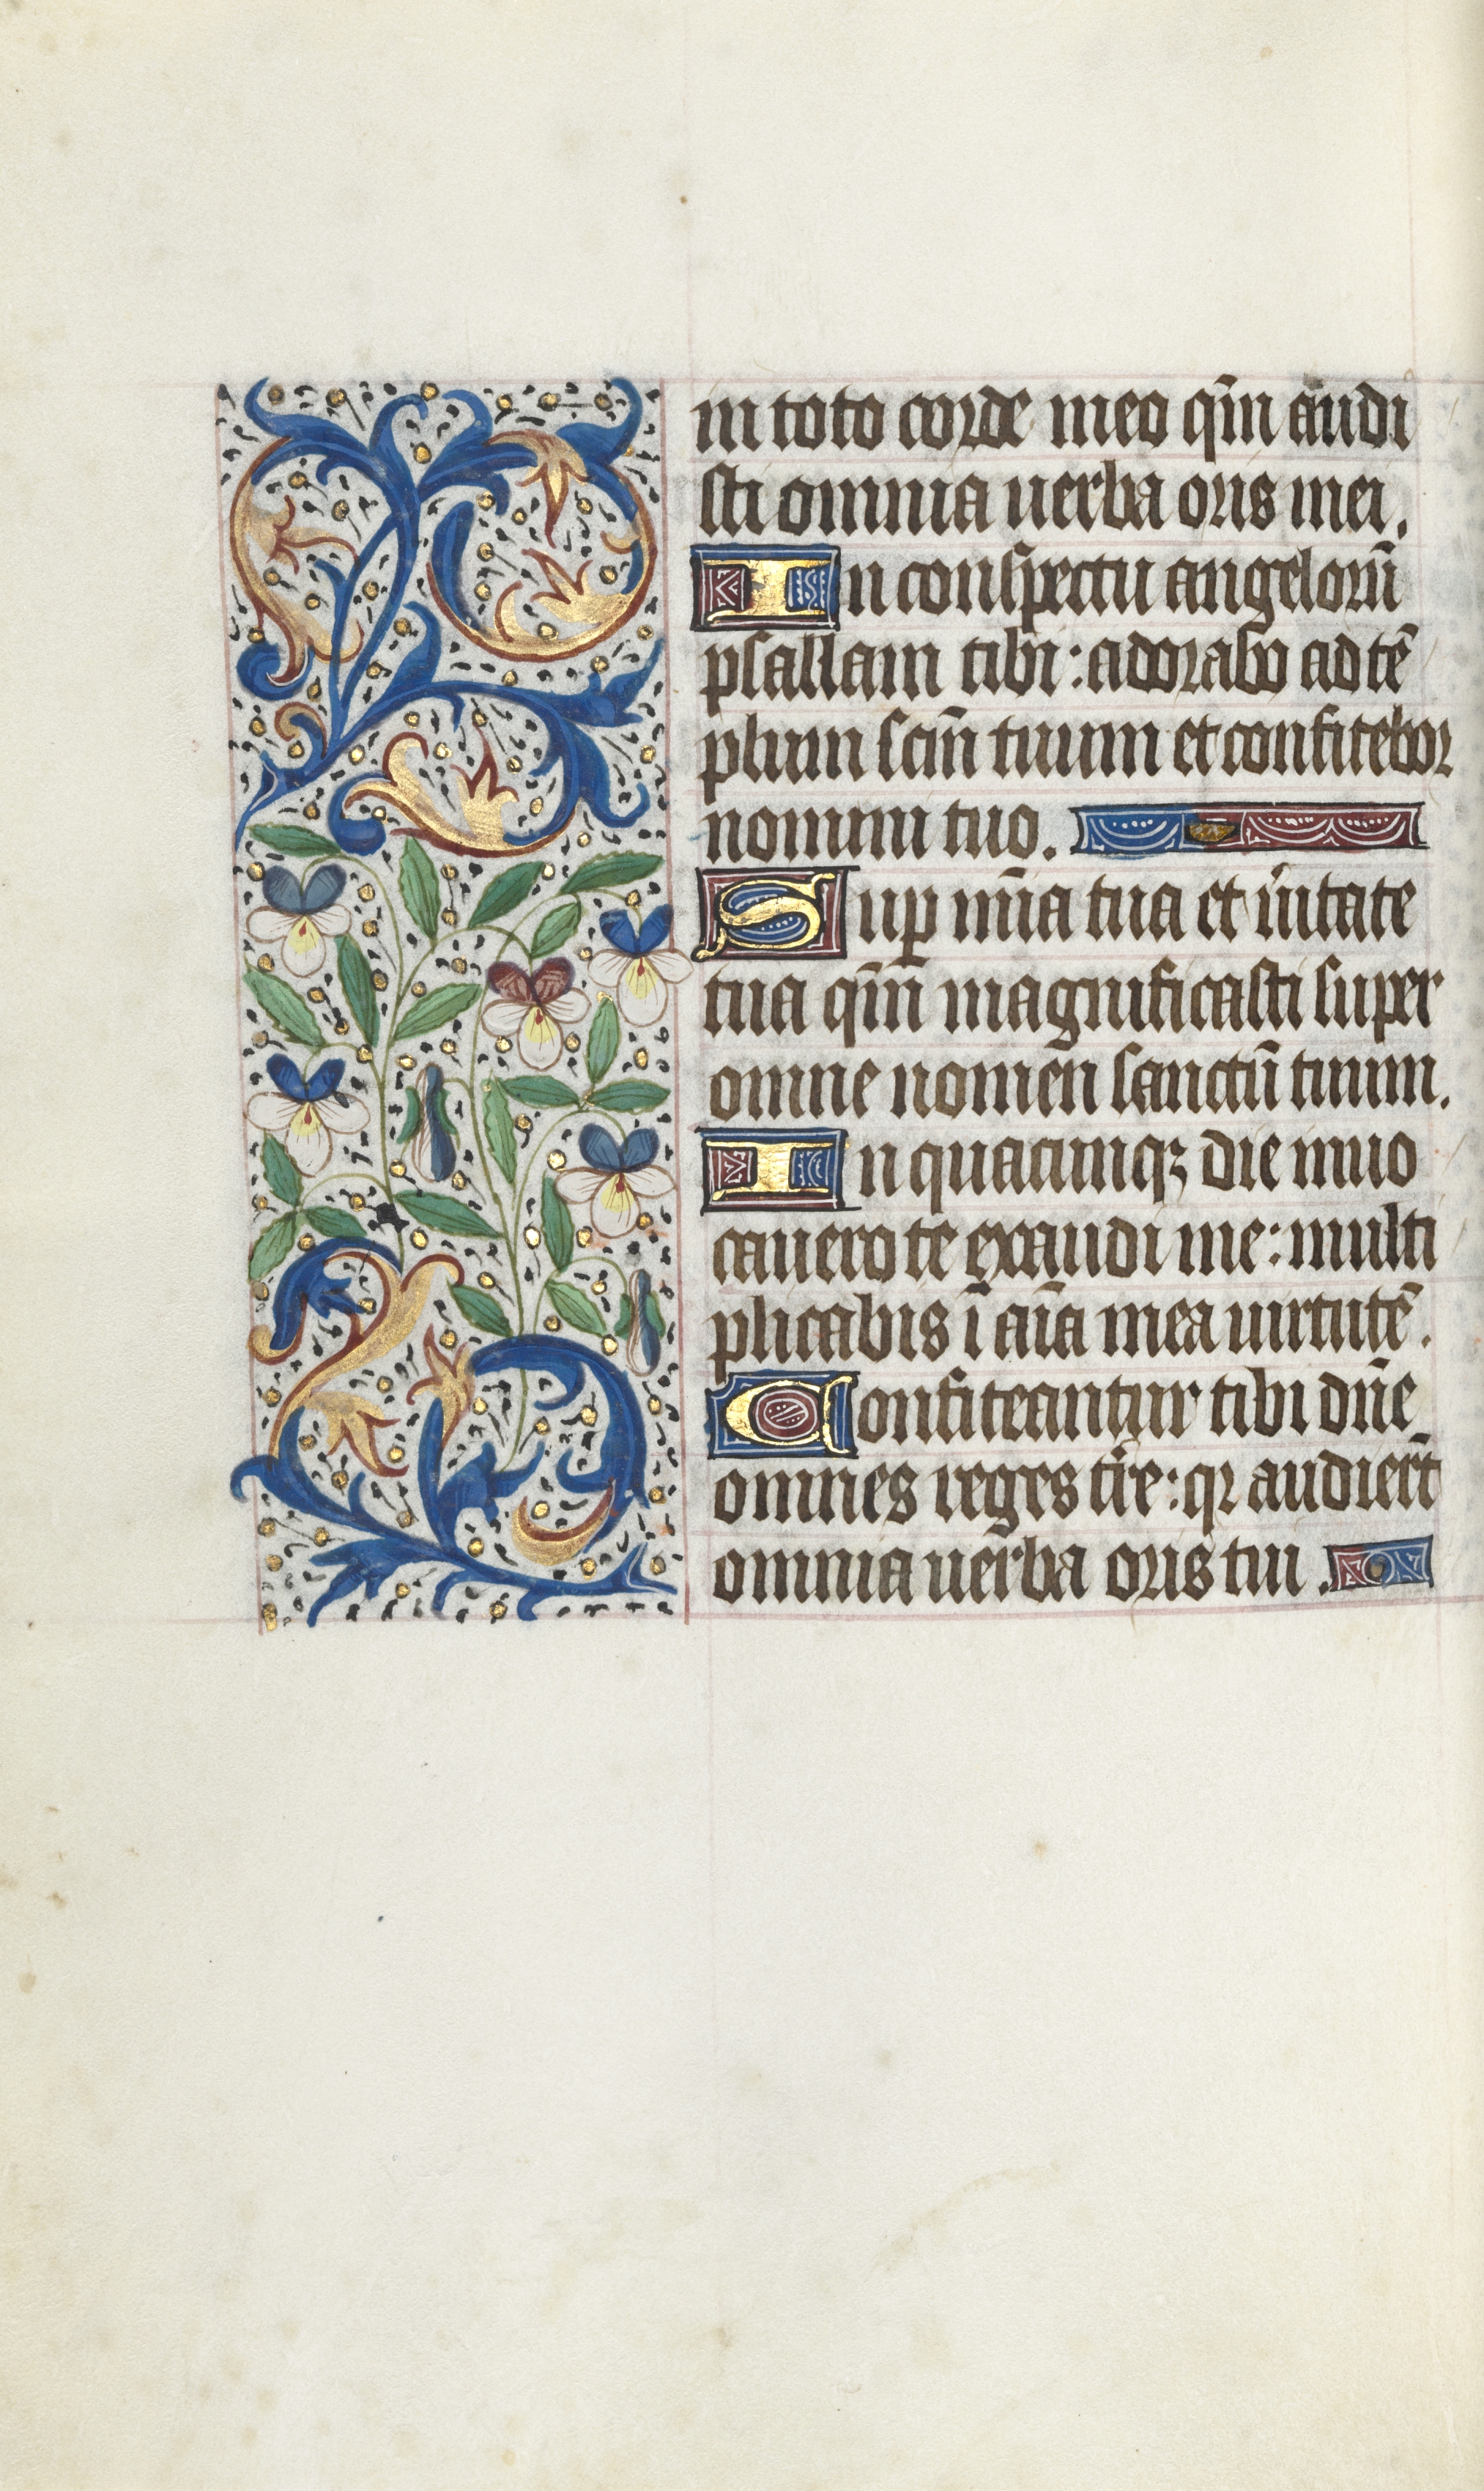 in toto corde meo qm̄ audi
sti omnia uerba oris mei.
In conspectu angeloru̅
psallam tibi: adorabo ad te̅
plum scm̄ tuum et confitebor
nomini tuo.
Sup mīa tua et ūitate
tua qm̄ magnificasti super
omne nomen sanctu̅ tuum.
In quacunqꝫ die inuo
cauero te exaudi me: multi
plicabis ī aīa mea uirtute̅.
Confiteantur tibi dn̄e
omnes reges tr̄e: qꝛ audiert̄
omnia uerba oris tui.